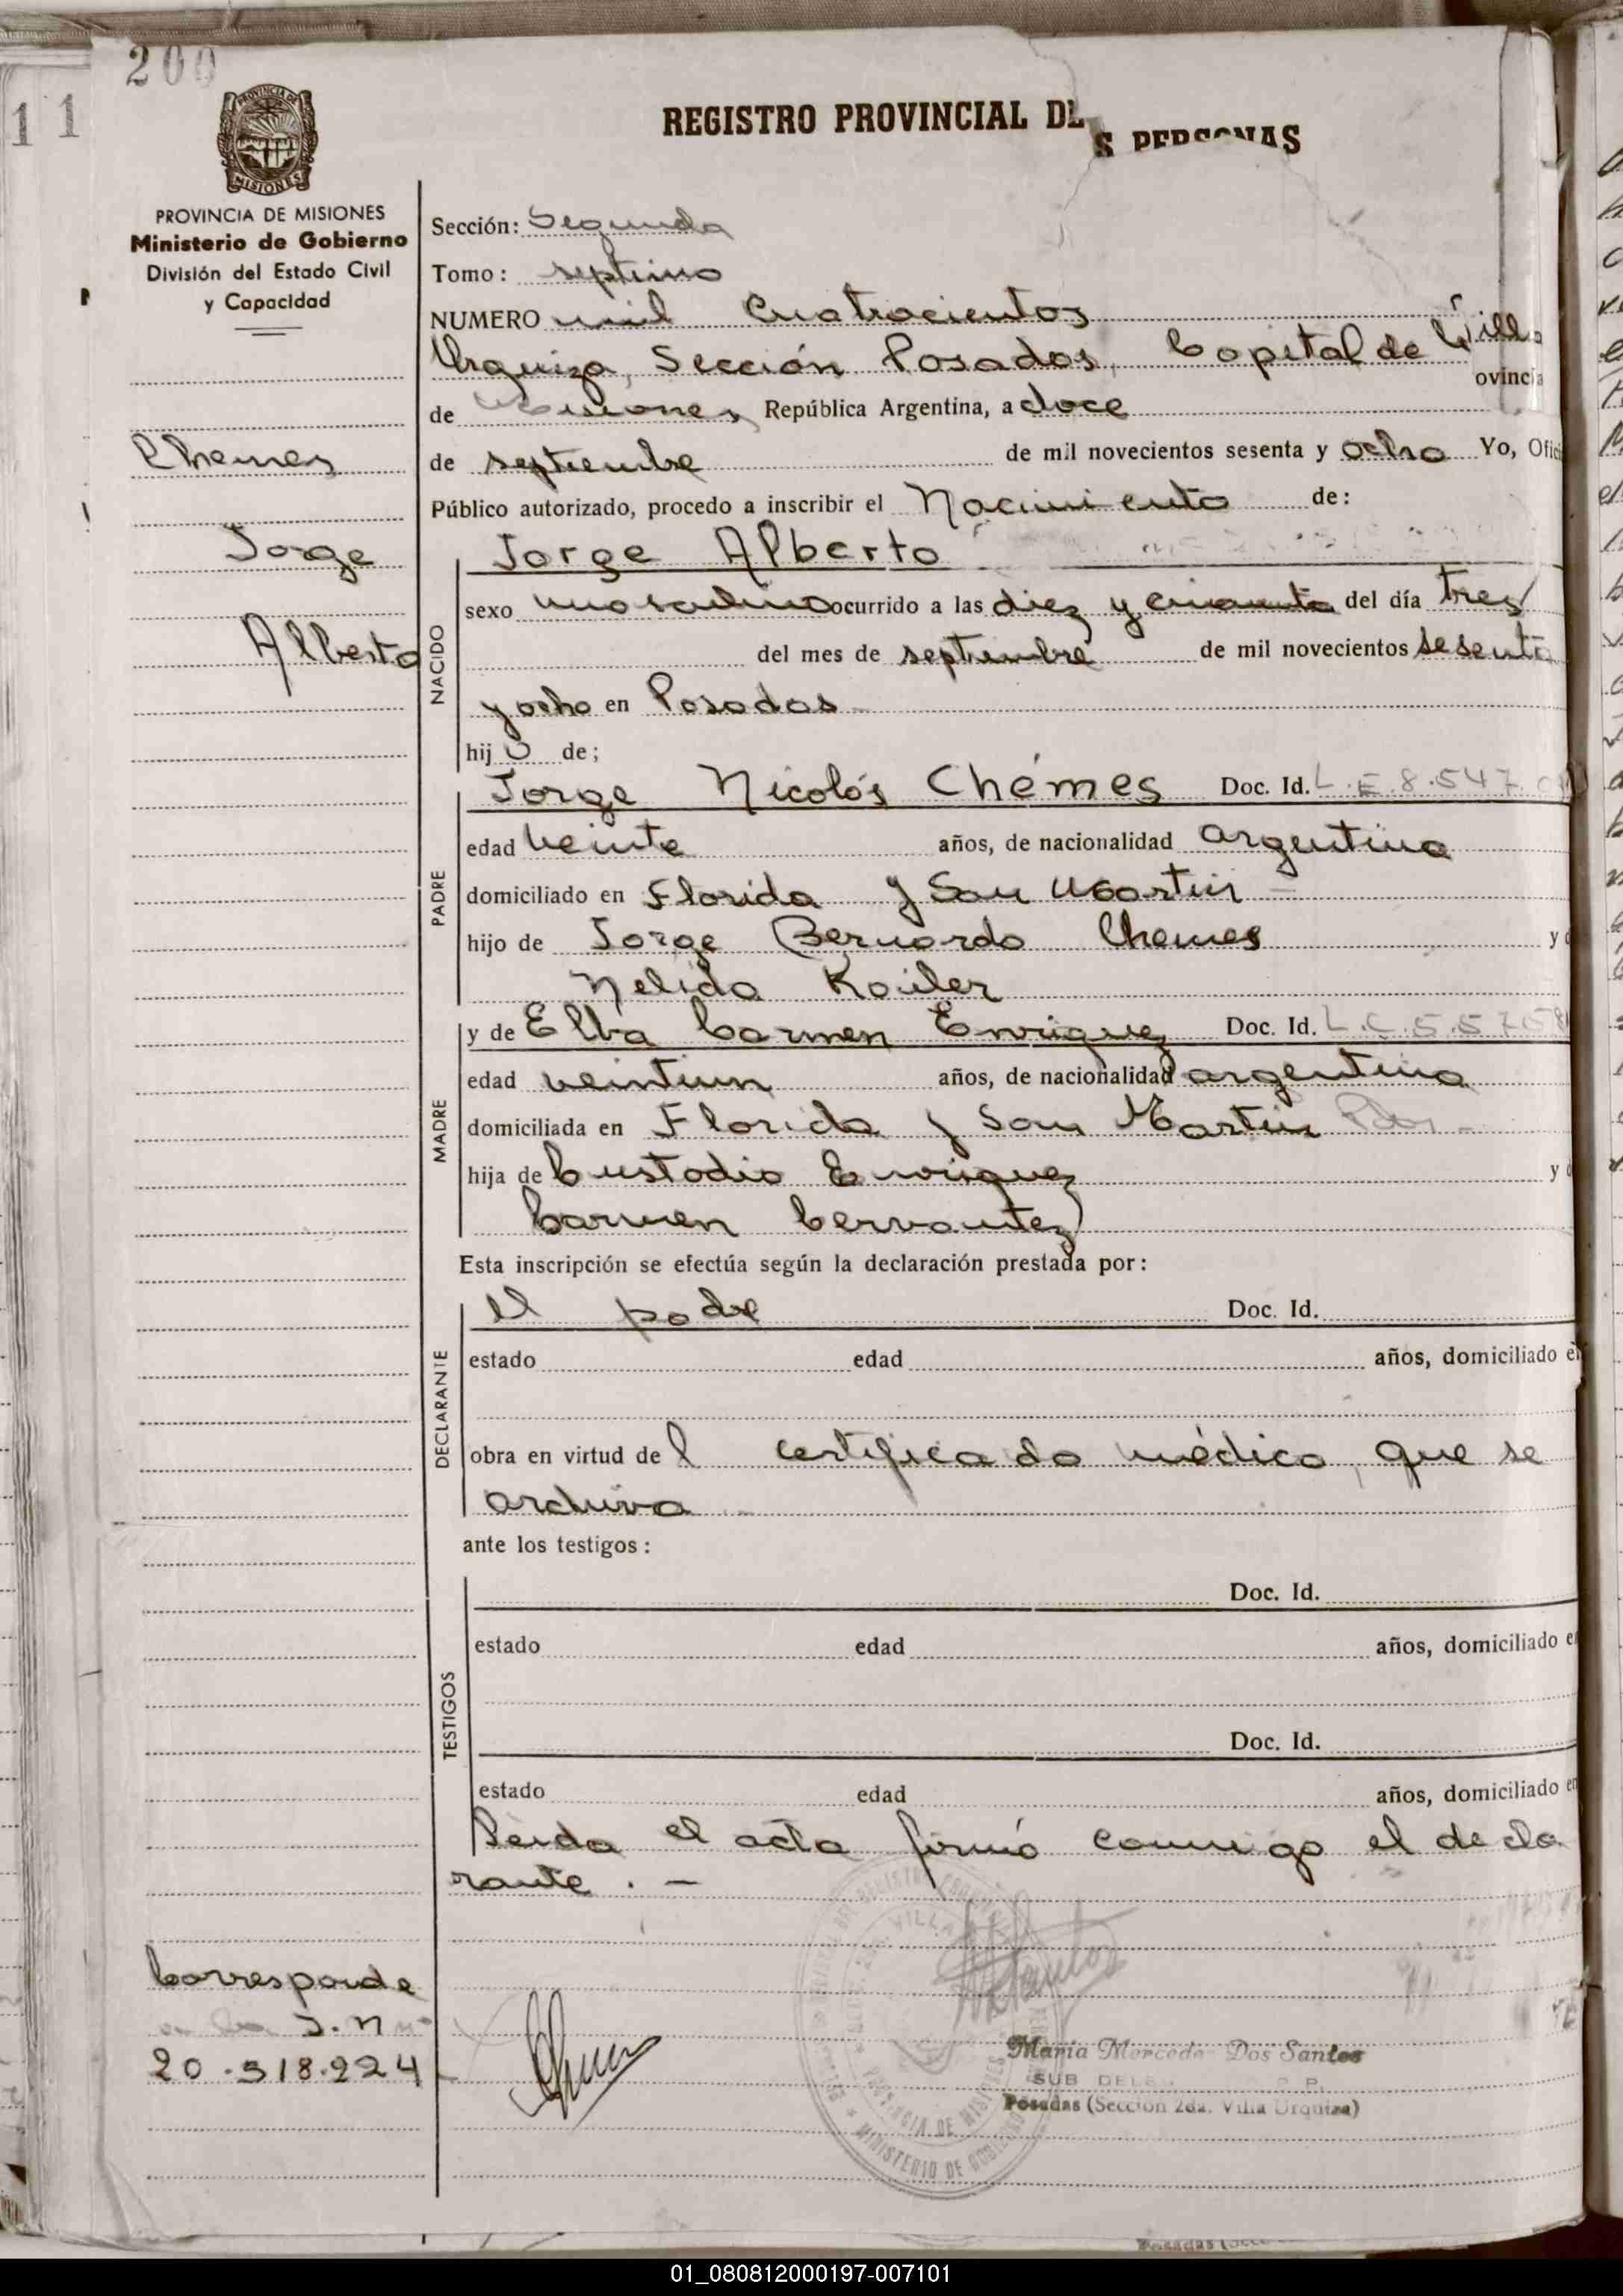 200
11
REGISTRO PROVINCIAL DE
S PERSONAS
PROVINCIA DE
MISIONES
PROVINCIA DE MISIONES
Ministerio de Gobierno
División del Estado Civil
y Capacidad
Chemes
Jorge
Alberto
Sección: Segunda
Tomo: septimo
NUMERO mil Cuatrocientos
Urquiza, Sección Posadas, Capital de Villa
ovincia
de Misiones República Argentina, a doce
de septiembre de mil novecientos sesenta y ocho Yo, Ofici
Público autorizado, procedo a inscribir el Nacimiento de:
NACIDO
Jorge Alberto
sexo masculino ocurrido a las diez y cincuenta del día tres
del mes de septiembre de mil novecientos sesenta
y ocho en Posadas
hijo de;
PADRE
Jorge Nicolás Chémes Doc. Id. L.E 8.547.
edad veinte años, de nacionalidad argentina
domiciliado en Florida y San Martin
hijo de Jorge Bernardo Chemes y d
Nelida Koiler
MADRE
y de Elba Carmen Enriquez Doc. Id. L.C 5.575
edad veintiun años, de nacionalidad argentina
domiciliada en Florida y San Martin Pdas
hija de Custodio Enriquez y d
Carmen Cervantez
Esta inscripción se efectúa según la declaración prestada por:
DECLARANTE
el padre Doc. Id.
estado edad años, domiciliado e
obra en virtud del certificado médico, que se
archiva
ante los testigos:
TESTIGOS
Doc. Id.
estado edad años, domiciliado en
Doc. Id.
estado edad años, domiciliado en
Leida el acta firmó conmigo el decla
rante. -
Corresponde
a la I.N nº
20.518.224
Maria Mercedes Dos Santos
SUB DELE P.
Posadas (Sección 2da. Villa Urquiza)
PROVINCIA DE MISIONES
MINISTERIO DE GOBIERNO
01_080812000197-007101